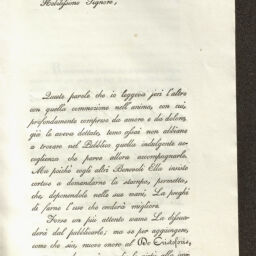 Nobilissimo Signore,
Queste parole che io leggeva jeri l'altro
con quella commozione nell'animo, con cui,
profondamente compreso da amore e da dolore,
già le aveva dettate, temo assai non abbiano
a trovare nel Pubblico quella indulgente ac-
coglienza che parve allora accompagnarle.
Ma poichè cogli altri Benevoli Ella insiste
cortese a domandarne la stampa, permetta,
che, deponendole nelle sue mani, La preghi
di farne l'uso che crederà migliore.
Forse un più attento esame La dissua-
derà dal pubblicarle; ma se per aggiungere,
come che sia, nuovo onore al De Cristoforis,